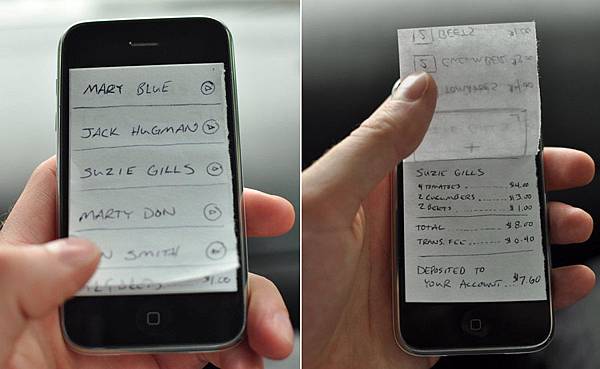 MARY BLUE
JACK HUGMAN
SUZIE GILLS
MARTY DON
SMITH
$1.00
2 BEETS $1.00
2 CUCUMBER $3.00
TOMATOES $4.00
SUZIE GILLS
+
SUZIE GILLS
4 TOMATOES ........ $4.00
2 CUCUMBERS ....... $3.00
2 BEETS ........... $1.00
TOTAL ........ $8.00
TRANS. FEE ..... $0.40
DEPOSITED TO
YOUR ACCOUNT... $7.60